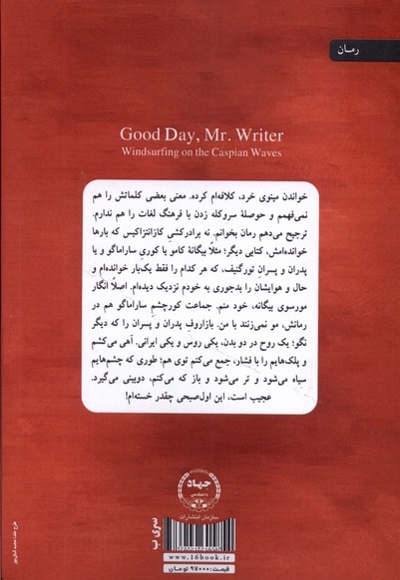 رمـان
Good Day, Mr. Writer
Windsurfing on the Caspian Waves
خواندن مینوی خرد، کلافه‌ام کرده. معنی بعضی کلماتش را هم
نمی‌فهمم و حوصلهٔ سروکله زدن با فرهنگ لغات را هم ندارم.
ترجیح می‌دهم رمان بخوانم. نه برادرکشیِ کازانتزاکیس که بارها
خوانده‌امش، کتابی دیگر؛ مثلاً بیگانهٔ کامو یا کوریِ ساراماگو و یا
پدران و پسرانِ تورگنیف، که هر کدام را فقط یک‌بار خوانده‌ام و
حال و هوایشان را بدجوری به خودم نزدیک دیده‌ام. اصلاً انگار
مورسوی بیگانه، خود منم. جماعت کورچشمِ ساراماگو هم در
رمانش، مو نمی‌زنند با من. بازاروفِ پدران و پسران را که دیگر
نگو؛ یک روح در دو بدن، یکی روس و یکی ایرانی. آهی می‌کشم
و پلک‌هایم را با فشار، جمع می‌کنم توی هم؛ طوری که چشم‌هایم
سیاه می‌شود و تر می‌شود و باز که می‌کنم، دوبینی می‌گیرد.
عجیب است، این اول‌صبحی چقدر خسته‌ام!
جهاد
دانشگاهی
سازمان انتشارات
سری ب
www.16book.ir
قیمت: ۹۷۰۰۰ تومان